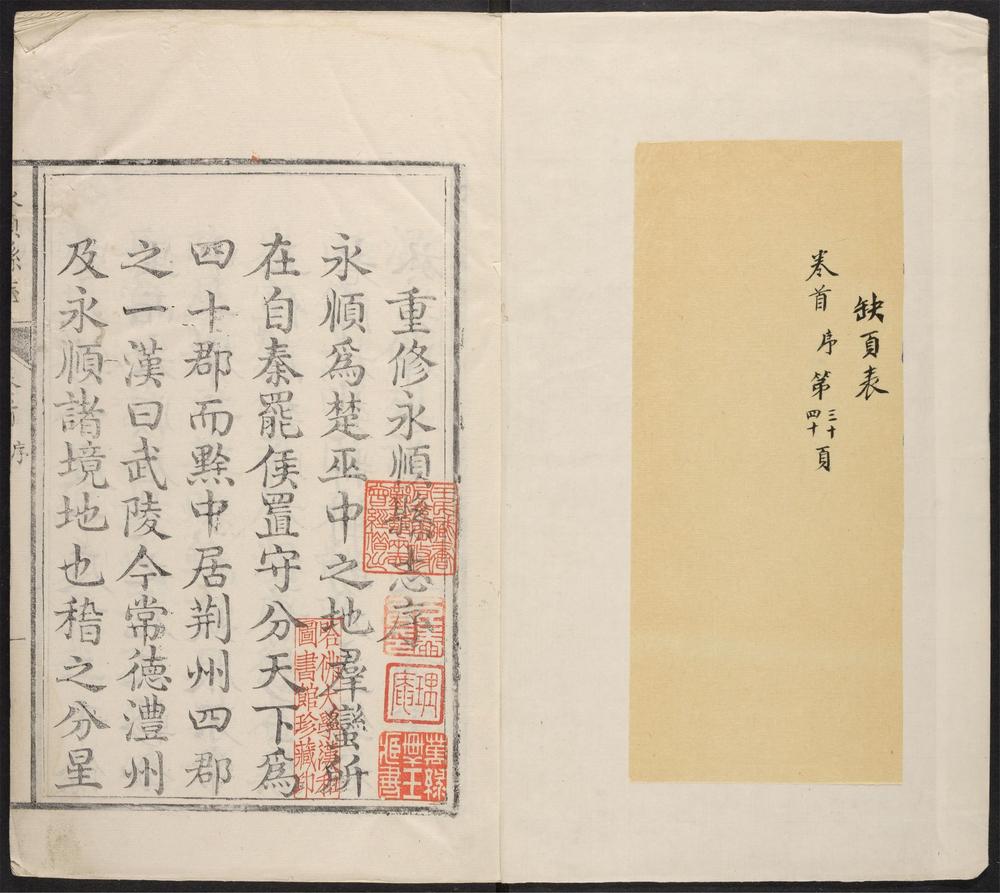 缺頁表
卷首 序 第三十四十頁
重修永順縣志序
永順爲楚巫中之地羣蠻所
在自秦罷侯置守分天下爲
四十郡而黔中居荆州四郡
之一漢曰武陵今常德澧州
及永順諸境地也稽之分星
永順縣志
序
哈佛大學漢和
圖書館珍藏印